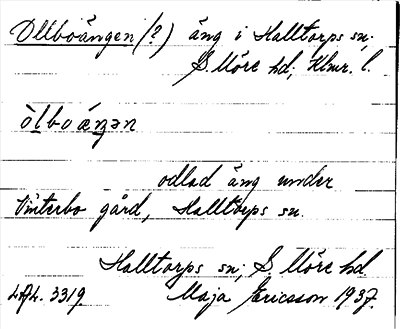 Ollboängen (?) äng i Halltorps sn;
S. Möre hd; Klmr. l.
òlboǽŋən
odlad äng under
Vinterbo gård, Halltorps sn.
Halltorps sn; S. Möre hd
LAL. 3319 Maja Ericsson 1937.